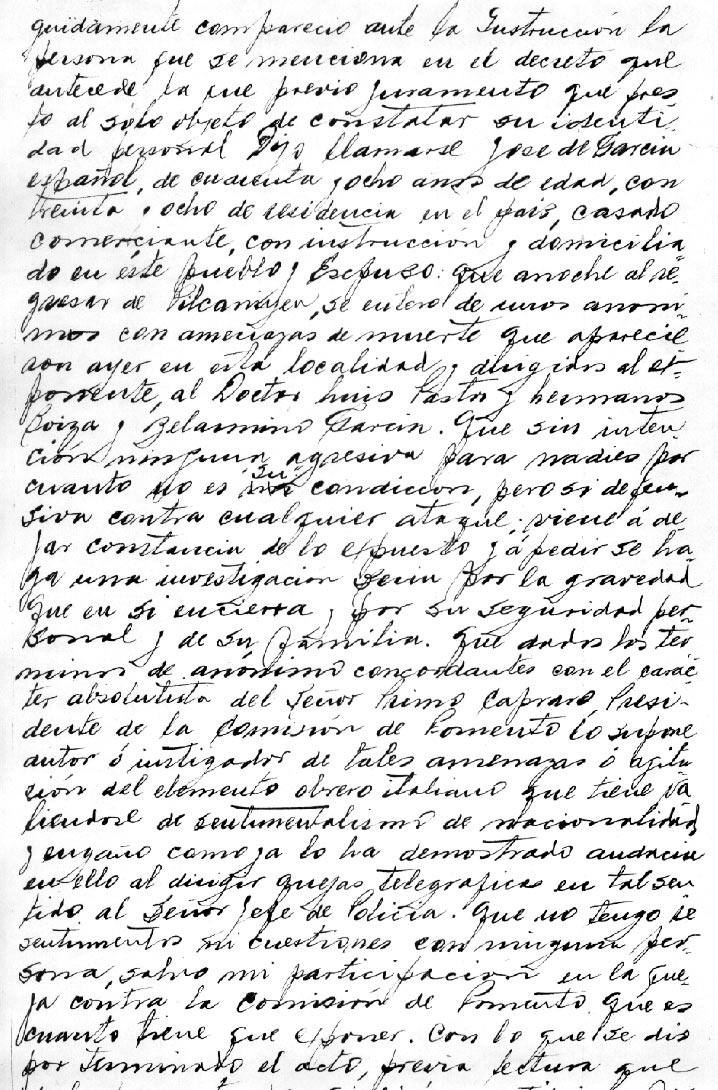 guidamente comparecio ante la Instrucción la
persona que se menciona en el decreto que
antecede la que previo juramento que pres-
to al sólo objeto de constatar su identi-
dad personal Dijo llamarse Jose de García
español, de cuarenta y ocho anos de edad, con
treinta y ocho de residencia en el país, casado
comerciante, con instrucción y domicilia
do en éste pueblo y Espuso: que anoche al re-
gresar de Pilcaniyen, se entero de unos anoni-
mos con amenazas de muerte que aparecie
ron ayer en esta localidad y dirigidos al es-
ponente, al Doctor Luis Pastor y hermanos
y Belarmino Garcia. Que sin inten
ción ninguna agresiva para nadies por
cuanto no es su condiccion, pero si defen-
siva contra cualquier ataque; viene á de
jar constancia de lo espuesto y á pedir se ha-
ga una investigacion seria por la gravedad
que en si encierra y por su seguridad per-
sonal y de su familia. Que dados los ter-
minos de anonimo concordantes con el carác-
ter absolutista del Señor Primo Capraro, Presi-
dente de la Comisión de Fomento lo supone
autor ó instigador de tales amenazas ó agita
ción del elemento obrero italiano que tiene va
liendose de sentimentalismo de nacionalidad
y engaño como ya lo ha demostrado audacia
en ello al dirigir quejas telegraficas en tal sen
tido al Señor Jefe de Policia. Que no tengo re
sentimentos ni cuestiones con ninguna per-
sona, salvo mi participación en la que-
ja contra la Comisión de Fomento. Que es
cuanto tiene que esponer. Con lo que se dio
por terminado el acto, previa lectura que